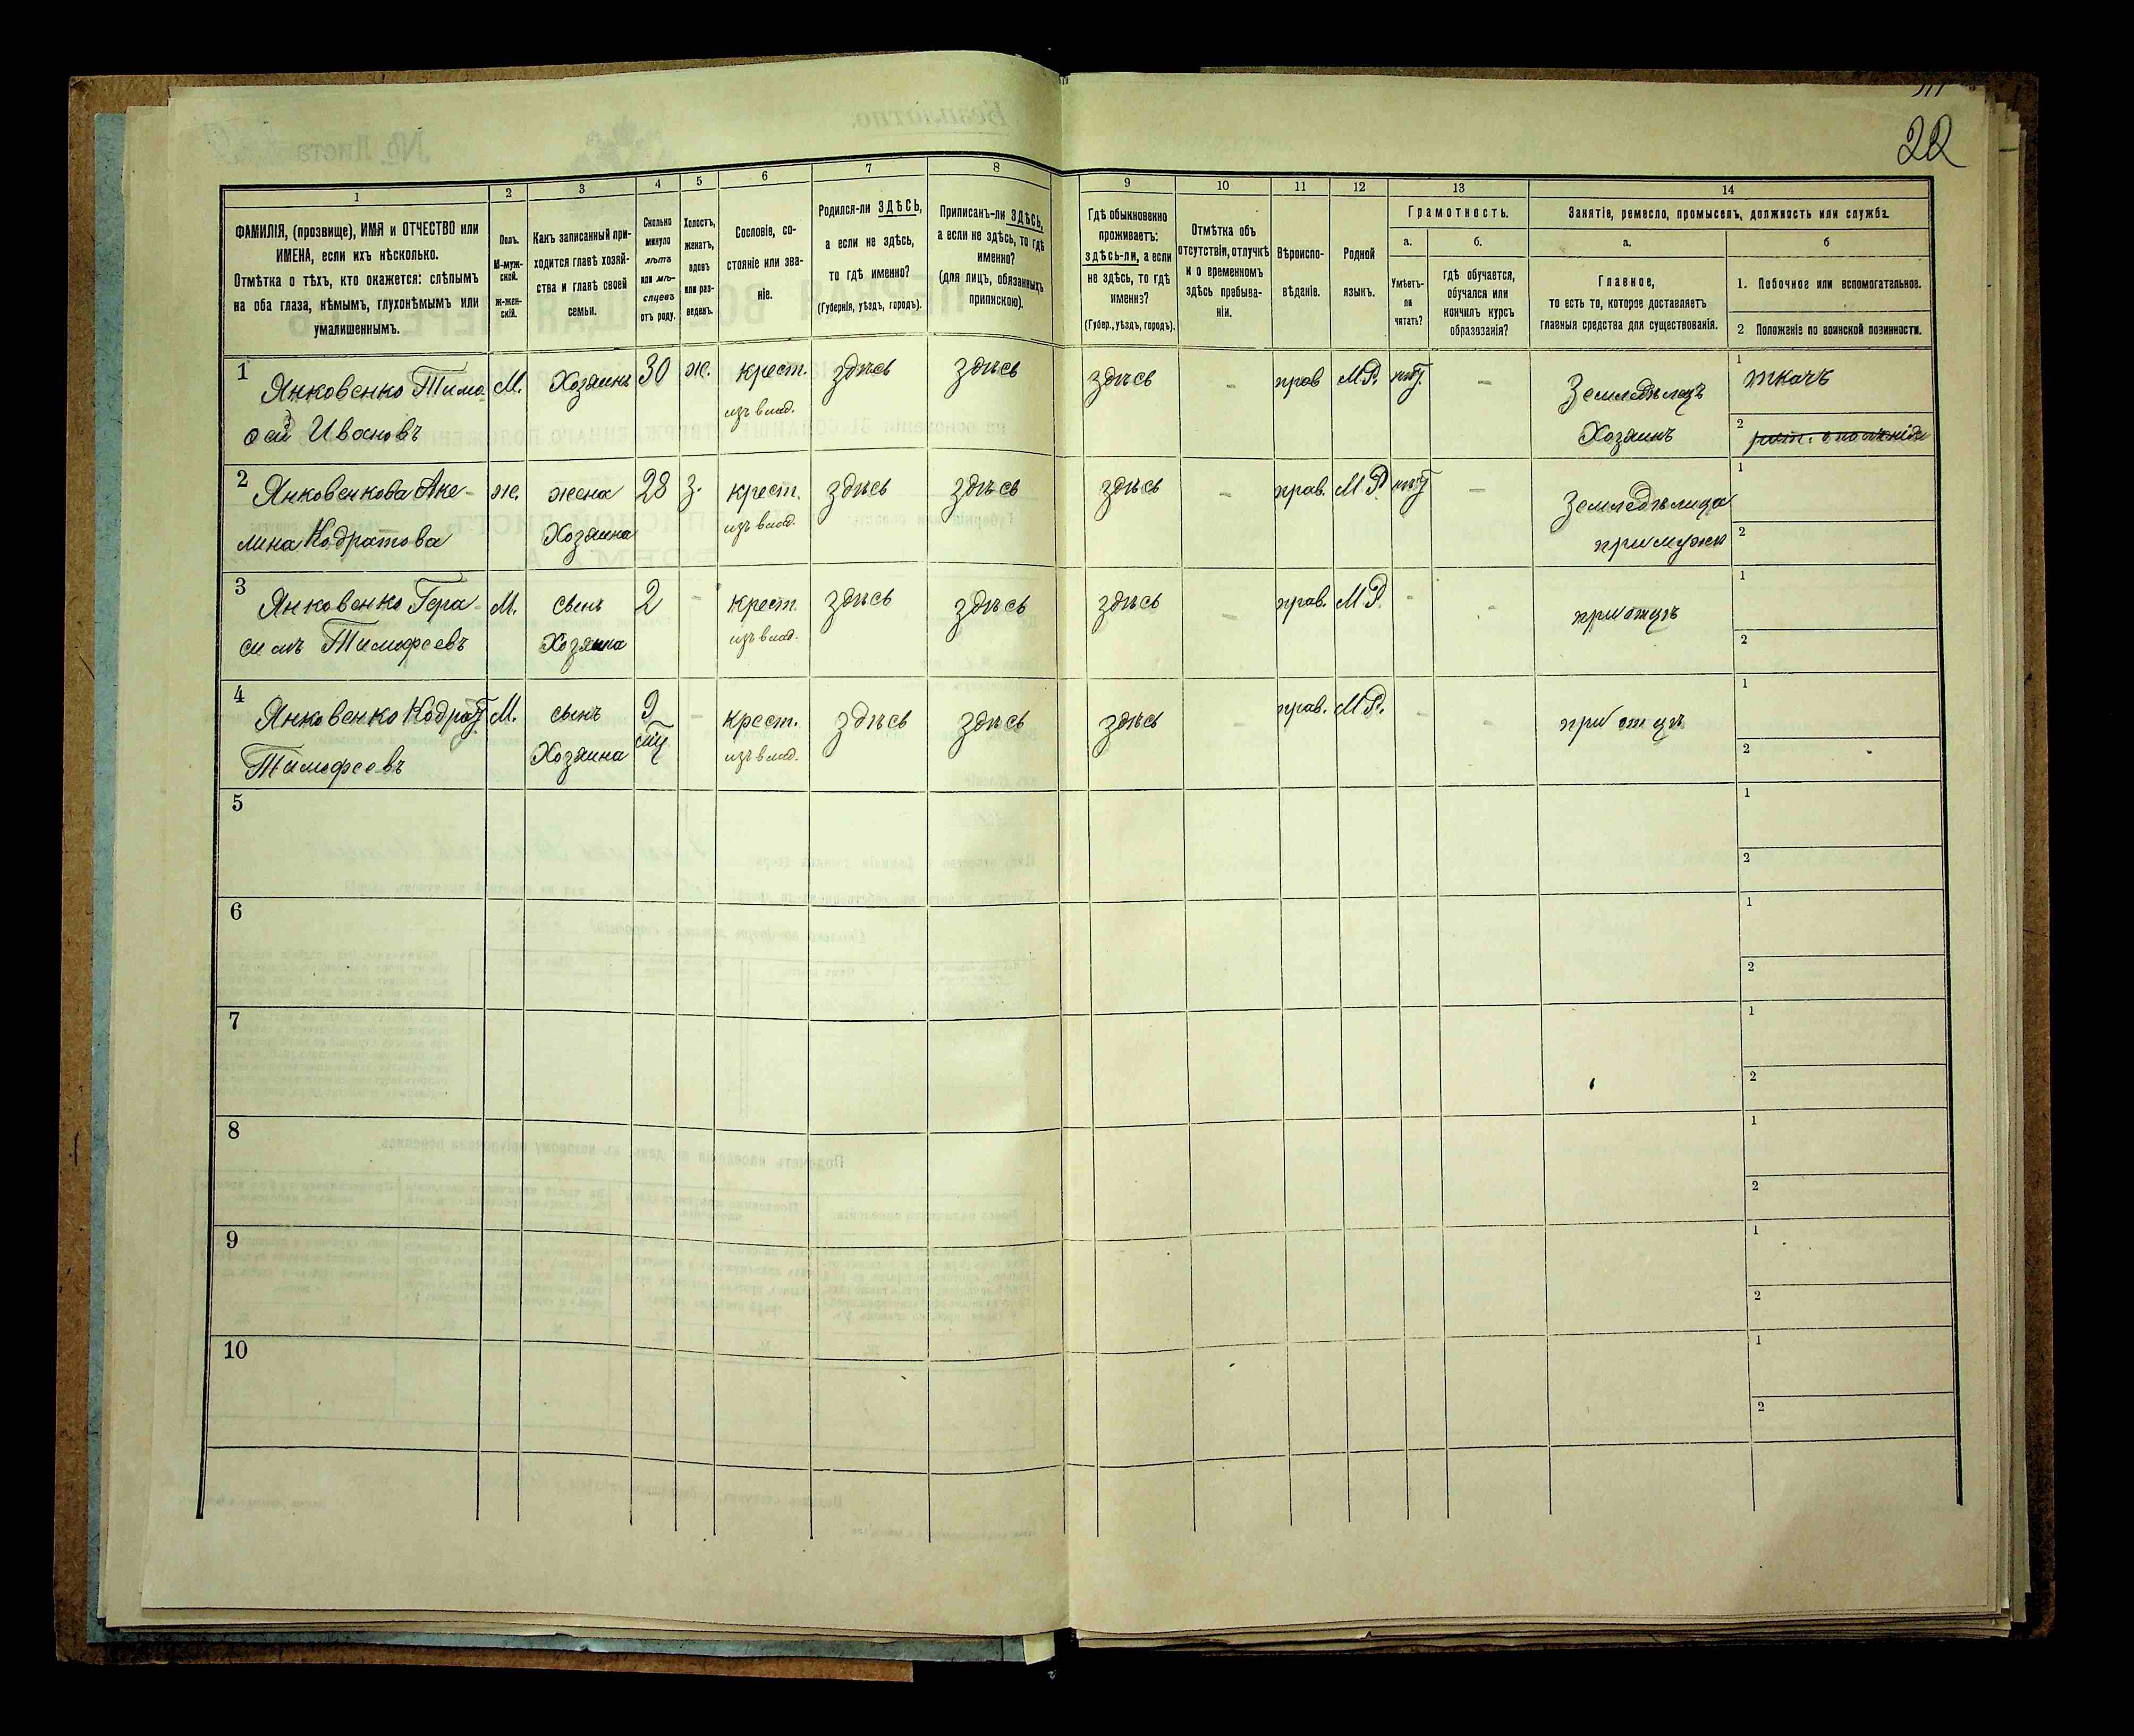 22
1
2
3
4
5
6
7
8
9
10
11
12
13
14
ФАМИЛІЯ, (прозвище), ИМЯ и ОТЧЕСТВО или
ИМЕНА, если ихъ нѣсколько.
Отмѣтка о тѣхъ, кто окажется: слѣпымъ
на оба глаза, нѣмымъ, глухонѣмымъ или
умалишеннымъ.
Полъ.
М-муж-
ской.
Ж-жен-
скій.
Какъ записанный при-
ходится главѣ хозяй-
ства и главѣ своей
семьи.
Сколько
минуло
лѣтъ
или мѣ-
сяцевъ
отъ роду.
Холостъ,
женатъ,
вдовъ
или раз-
веденъ.
Сословіе, со-
стояніе или зва-
ніе.
Родился-ли ЗДѢСЬ,
а если не здѣсь,
то гдѣ именно?
(Губернія, уѣздъ, городъ).
Приписанъ-ли ЗДѢСЬ,
а если не здѣсь, то гдѣ
именно?
(для лицъ, обязанныхъ
припискою).
Гдѣ обыкновенно
проживаетъ:
здѣсь-ли, а если
не здѣсь, то гдѣ
именно?
(Губер., уѣздъ, городъ).
Отмѣтка объ
отсутствіи, отлучкѣ
и о временномъ
здѣсь пребыва-
ніи.
Вѣроиспо-
вѣданіе.
Родной
языкъ.
Грамотность.
а.
б.
Умѣетъ-
ли
читать?
гдѣ обучается,
обучался или
кончилъ курсъ
образованія?
Занятіе, ремесло, промыселъ, должность или служба.
а.
б
Главное,
то есть то, которое доставляетъ
главныя средства для существованія.
1. Побочное или вспомогательное.
2 Положеніе по воинской повинности.
1 Янковенко Тимо- М. Хозяинъ 30 ж. крест. здѣсь здѣсь здѣсь - прав М.Р. нѣт. - Земледѣлецъ 1 ткачъ
ѳей Ивановъ из влад. Хозяинъ 2
2 Янковенкова Аке- ж. жена 28 з. крест. здѣсь здѣсь здѣсь - прав. М.Р. нѣт - Земледѣлица 1
лина Кодратова Хозяина из влад. при мужѣ 2
3 Янковенко Гера- М. сынъ 2 - крест. здѣсь здѣсь здѣсь - прав. М.Р. - - при отцѣ 1
симъ Тимофеевъ Хозяина из влад. 2
4 Янковенко Кодрат М. сынъ 9 - крест. здѣсь здѣсь здѣсь - прав. М.Р. - - при отцѣ 1
Тимофеевъ Хозяина мц из влад. 2
5 1
2
6 1
2
7 1
2
8 1
2
9 1
2
10 1
2